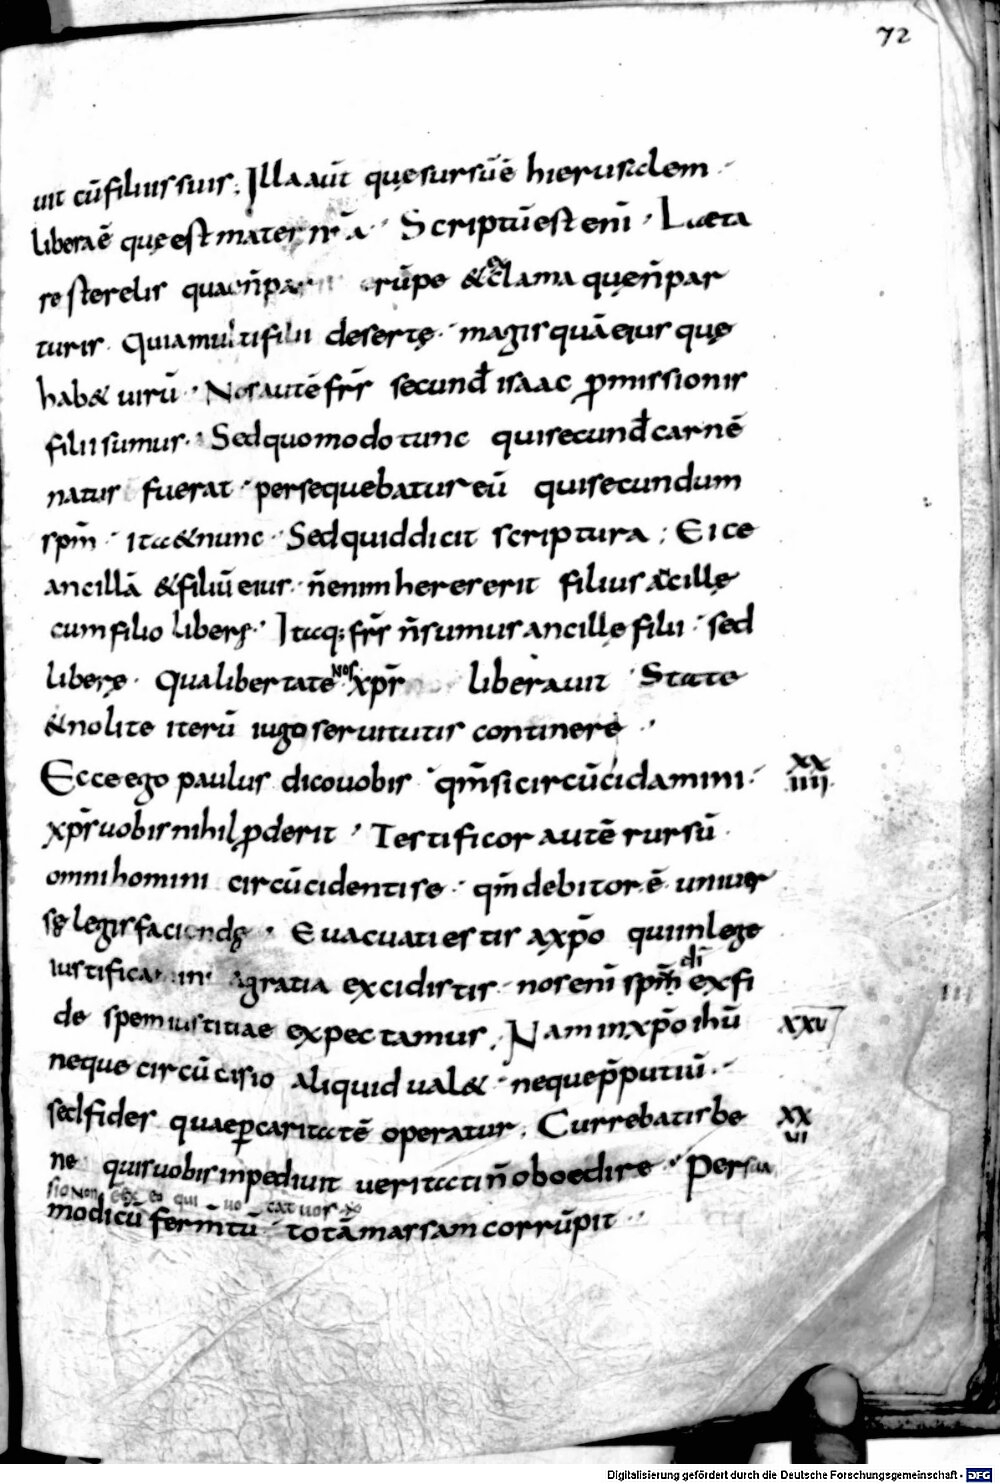 72
uit cū filiis suis. Illa aūt quę sursū ē hierusalem ·
libera ē quę est mater nr̄a · Scriptū est enī · Laeta
re sterelis quae n̄ par rūpe & clama quę n̄ par
turis · Quia multi filii desertę · magis quā eius quę
hab& uirū · Nos autē frr̄s secund̄ isaac ꝓmissionis
filii sumus · Sed quomodo tunc qui secund̄ carnē
natus fuerat · persequebatur eū qui secundum
spm̄ · ita & nunc · Sed quid dicit scriptura ; Eice
ancillā & filiū eius · n̄ enim heres erit filius ācillę
cum filio liberę · Itaq; frr̄s n̄ sumus ancillę filii · sed
liberę · Qua libertate nos xpr̄s liberauit · State
& nolite iterū iugo seruitutis continere ·
Ecce ego paulus dico uobis · qm̄ si circūcidamini · xx iiii
xpr̄s uobis nihil ꝓderit · Testificor autē rursū ·
omni homini circūcidenti se · qm̄ debitor ē uniuer
sę legis faciendę · Euacuati estis a xpō qui in lege
iustifica in a gratia excidistis · nos enī spm̄ ex fi
de spem iustitiae expectamus. Nam in xpō ihū xxu
neque circūcisio aliquid ual& · neque p̄putiū ·
sed fides quae ꝑ caritatē operatur. Currebatis be xx ui
ne quis uobis inpediuit ueritati n̄ oboedire · Persua
sio non ex eo qui uocat uos
modicū ferm̄tū · totā massam corrūpit ·
Digitalisierung gefördert durch die Deutsche Forschungsgemeinschaft - DFG